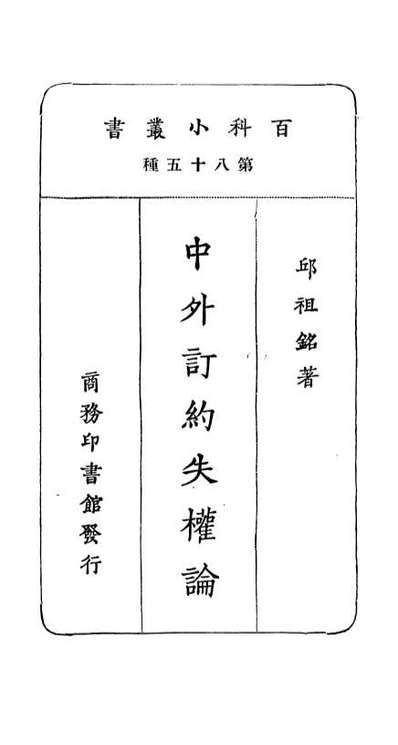 百科小叢書
第八十五種
邱祖銘著
中外訂約失權論
商務印書館發行